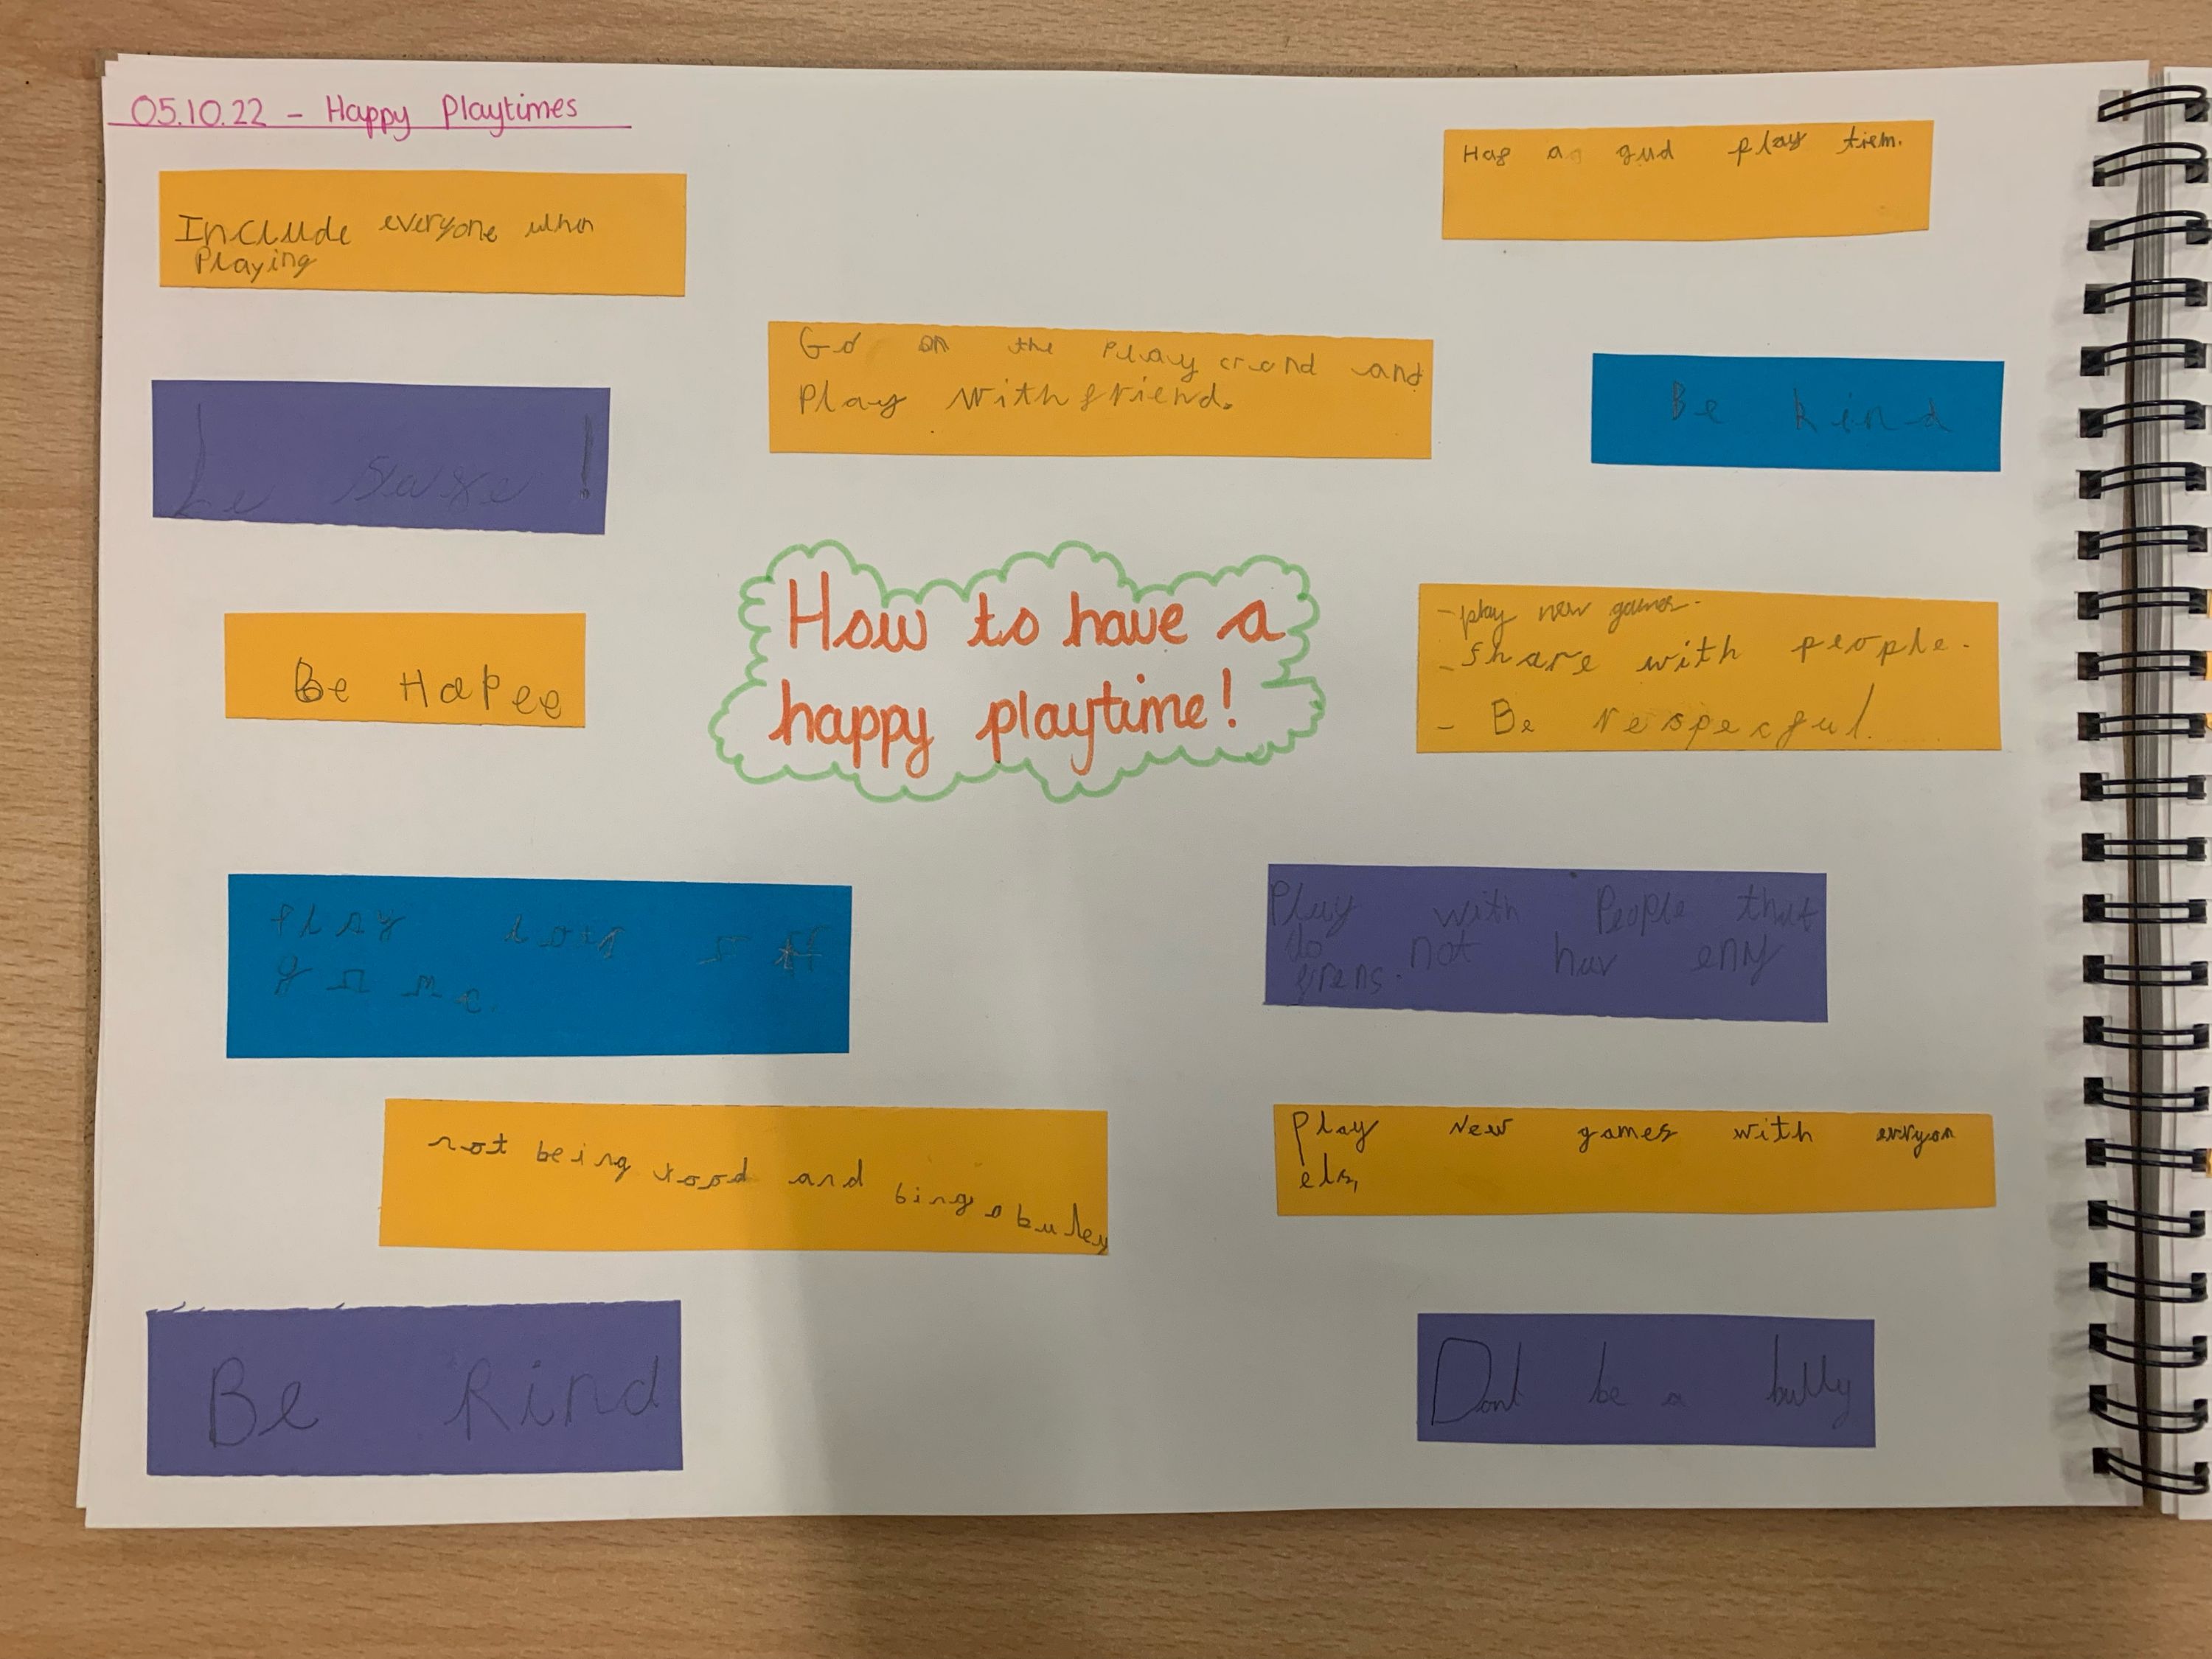 05.10.22 - Happy Playtimes
Include everyone when
Playing
Go on the Play crond and
Play with friend.
Haf a gud play tiem.
Be kind
be safe!
Be HaPee
How to have a
happy playtime!
- play new games.
- share with people.
- Be respecful.
Play lots of
game.
Play with People that
do not hav eny
frens.
not being rood and bing a buley
Play New games with evryon
els,
Be kind
Dont be a bully